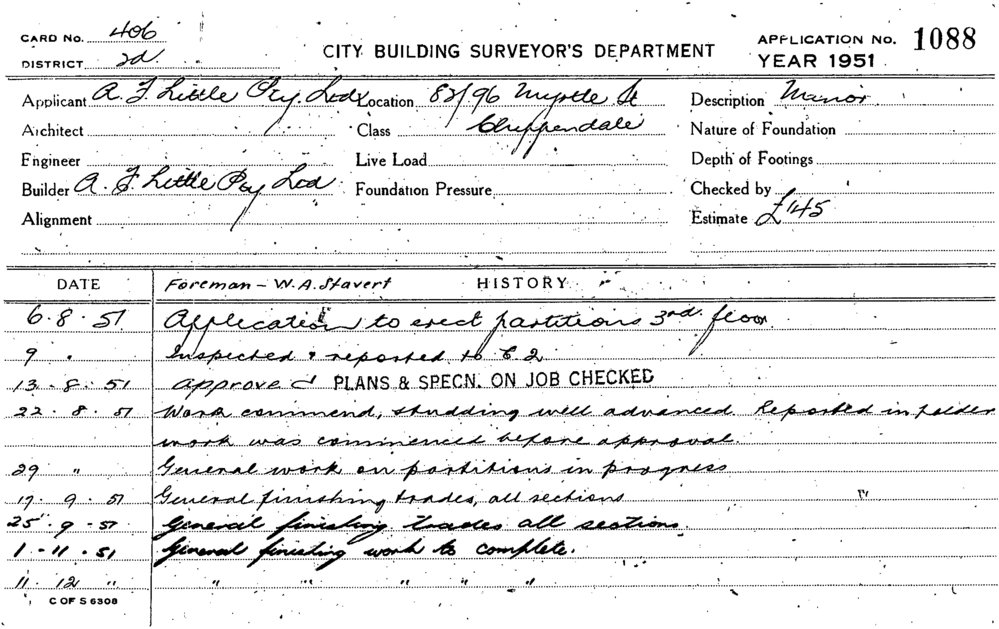 CARD NO. 406
DISTRICT 2d.
CITY BUILDING SURVEYOR'S DEPARTMENT
APPLICATION NO. 1088
YEAR 1951
Applicant A. F. Little Pty. Ltd Location 82/96 Myrtle St Description Minor.
Architect Class Chippendale Nature of Foundation
Engineer Live Load Depth of Footings
Builder A. F. Little Pty Ltd Foundation Pressure Checked by
Alignment Estimate £145
DATE Foreman - W.A. Stavert HISTORY
6.8.51 Application to erect partitions 3rd. floor
9 " Inspected & reported to
13.8.51 approved PLANS & SPECN. ON JOB CHECKED
22.8.51 Work commend, studding well advanced. Reported in folder
work was commenced before approval.
29 " General work on partitions in progress
17.9.51 General finishing trades, all sections
25.9.51 General finishing trades all sections.
1.11.51 General finishing work to complete.
11.12 " " " " " "
C OF S 6308